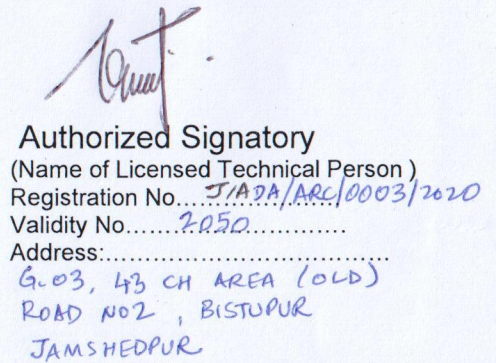 Authorized Signatory
(Name of Licensed Technical Person )
Registration No....JIADA/ARC/0003/2020
Validity No.......2050...............
Address:...................................
G-03, 43 CH AREA (OLD)
ROAD NO2 , BISTUPUR
JAMSHEDPUR